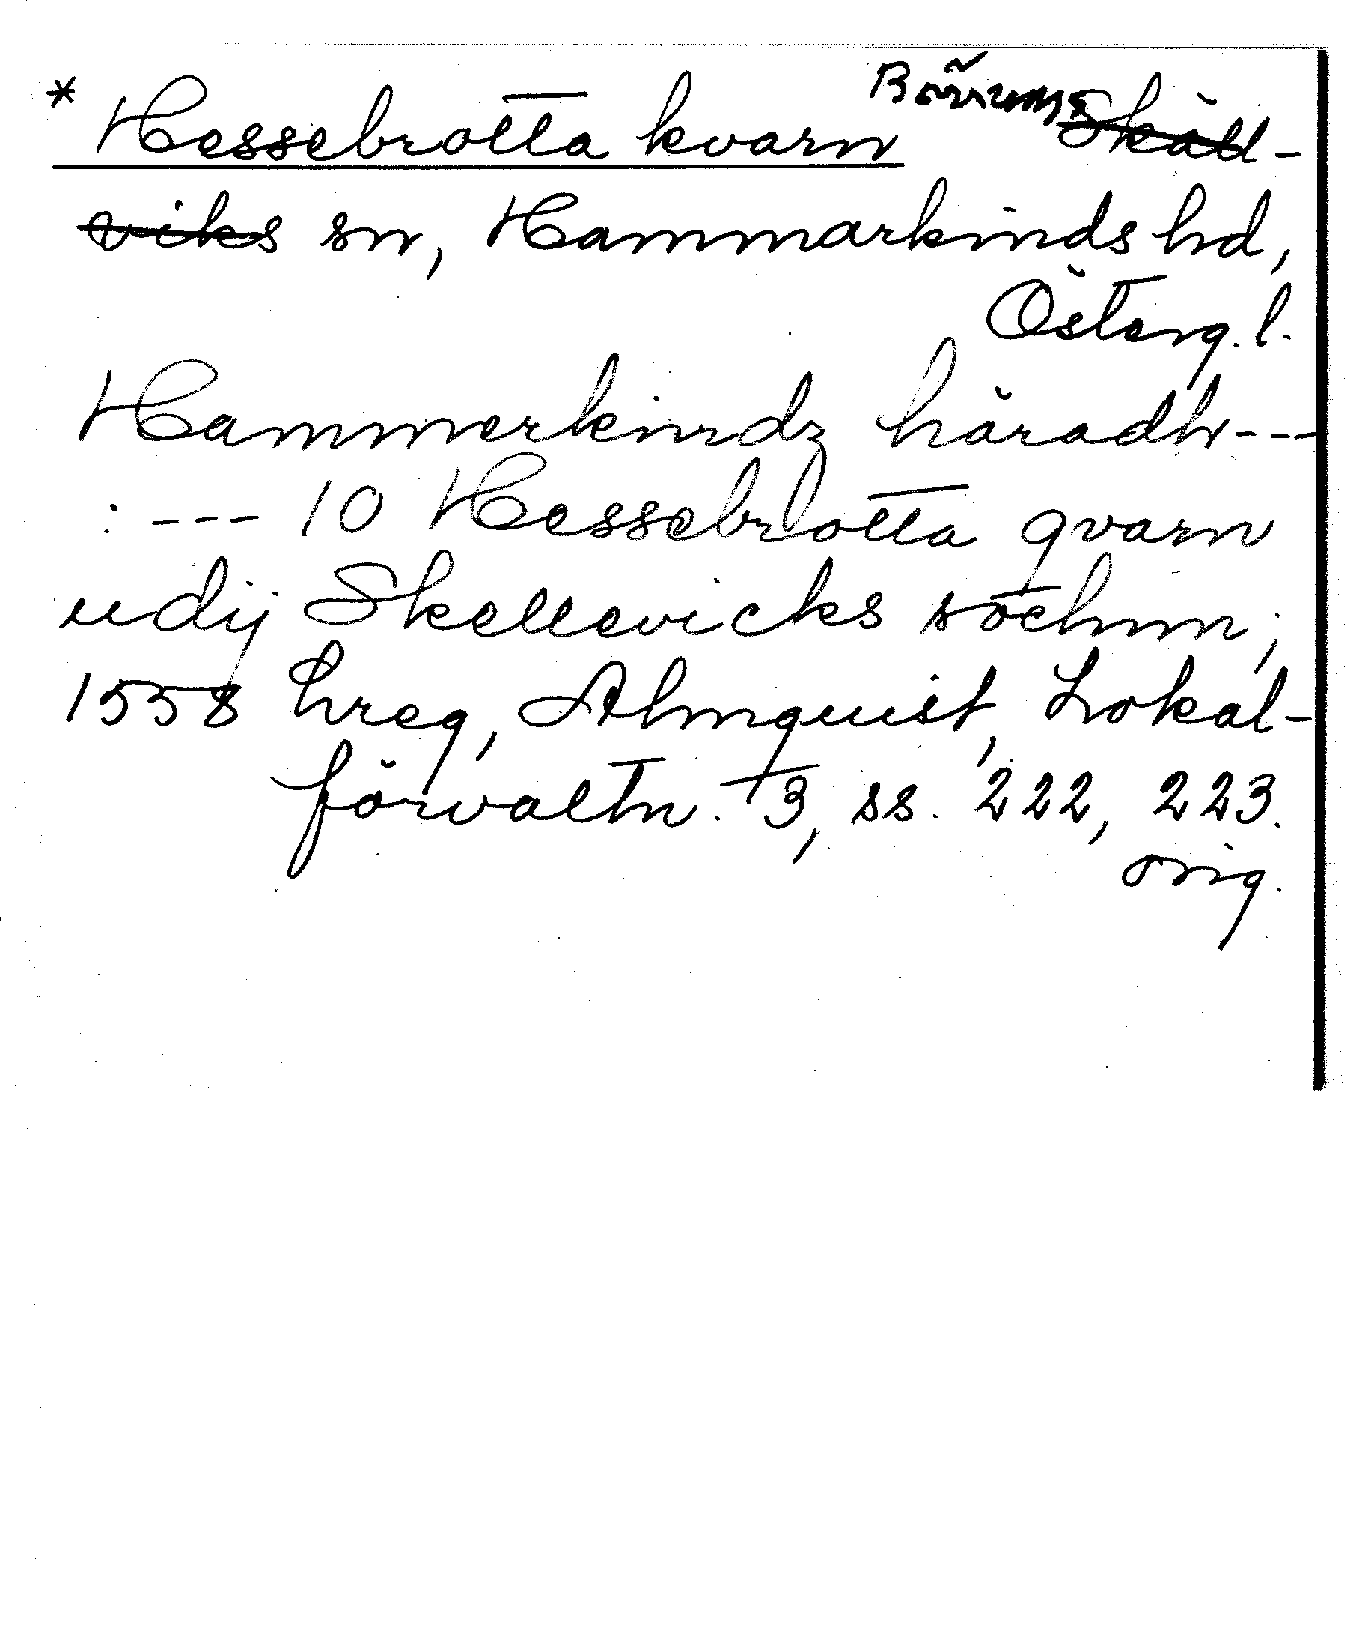 * Hessebrotta kvarn Börrums Skäll-
viks sn, Hammarkinds hd,
Österg. l.
Hammerkindz häradh---
: --- 10 Hessebrotta qvarn
udij Skellevicks sochnn,
1558 hreg, Almquist, Lokal-
förvaltn. 3, ss. 222, 223.
orig.